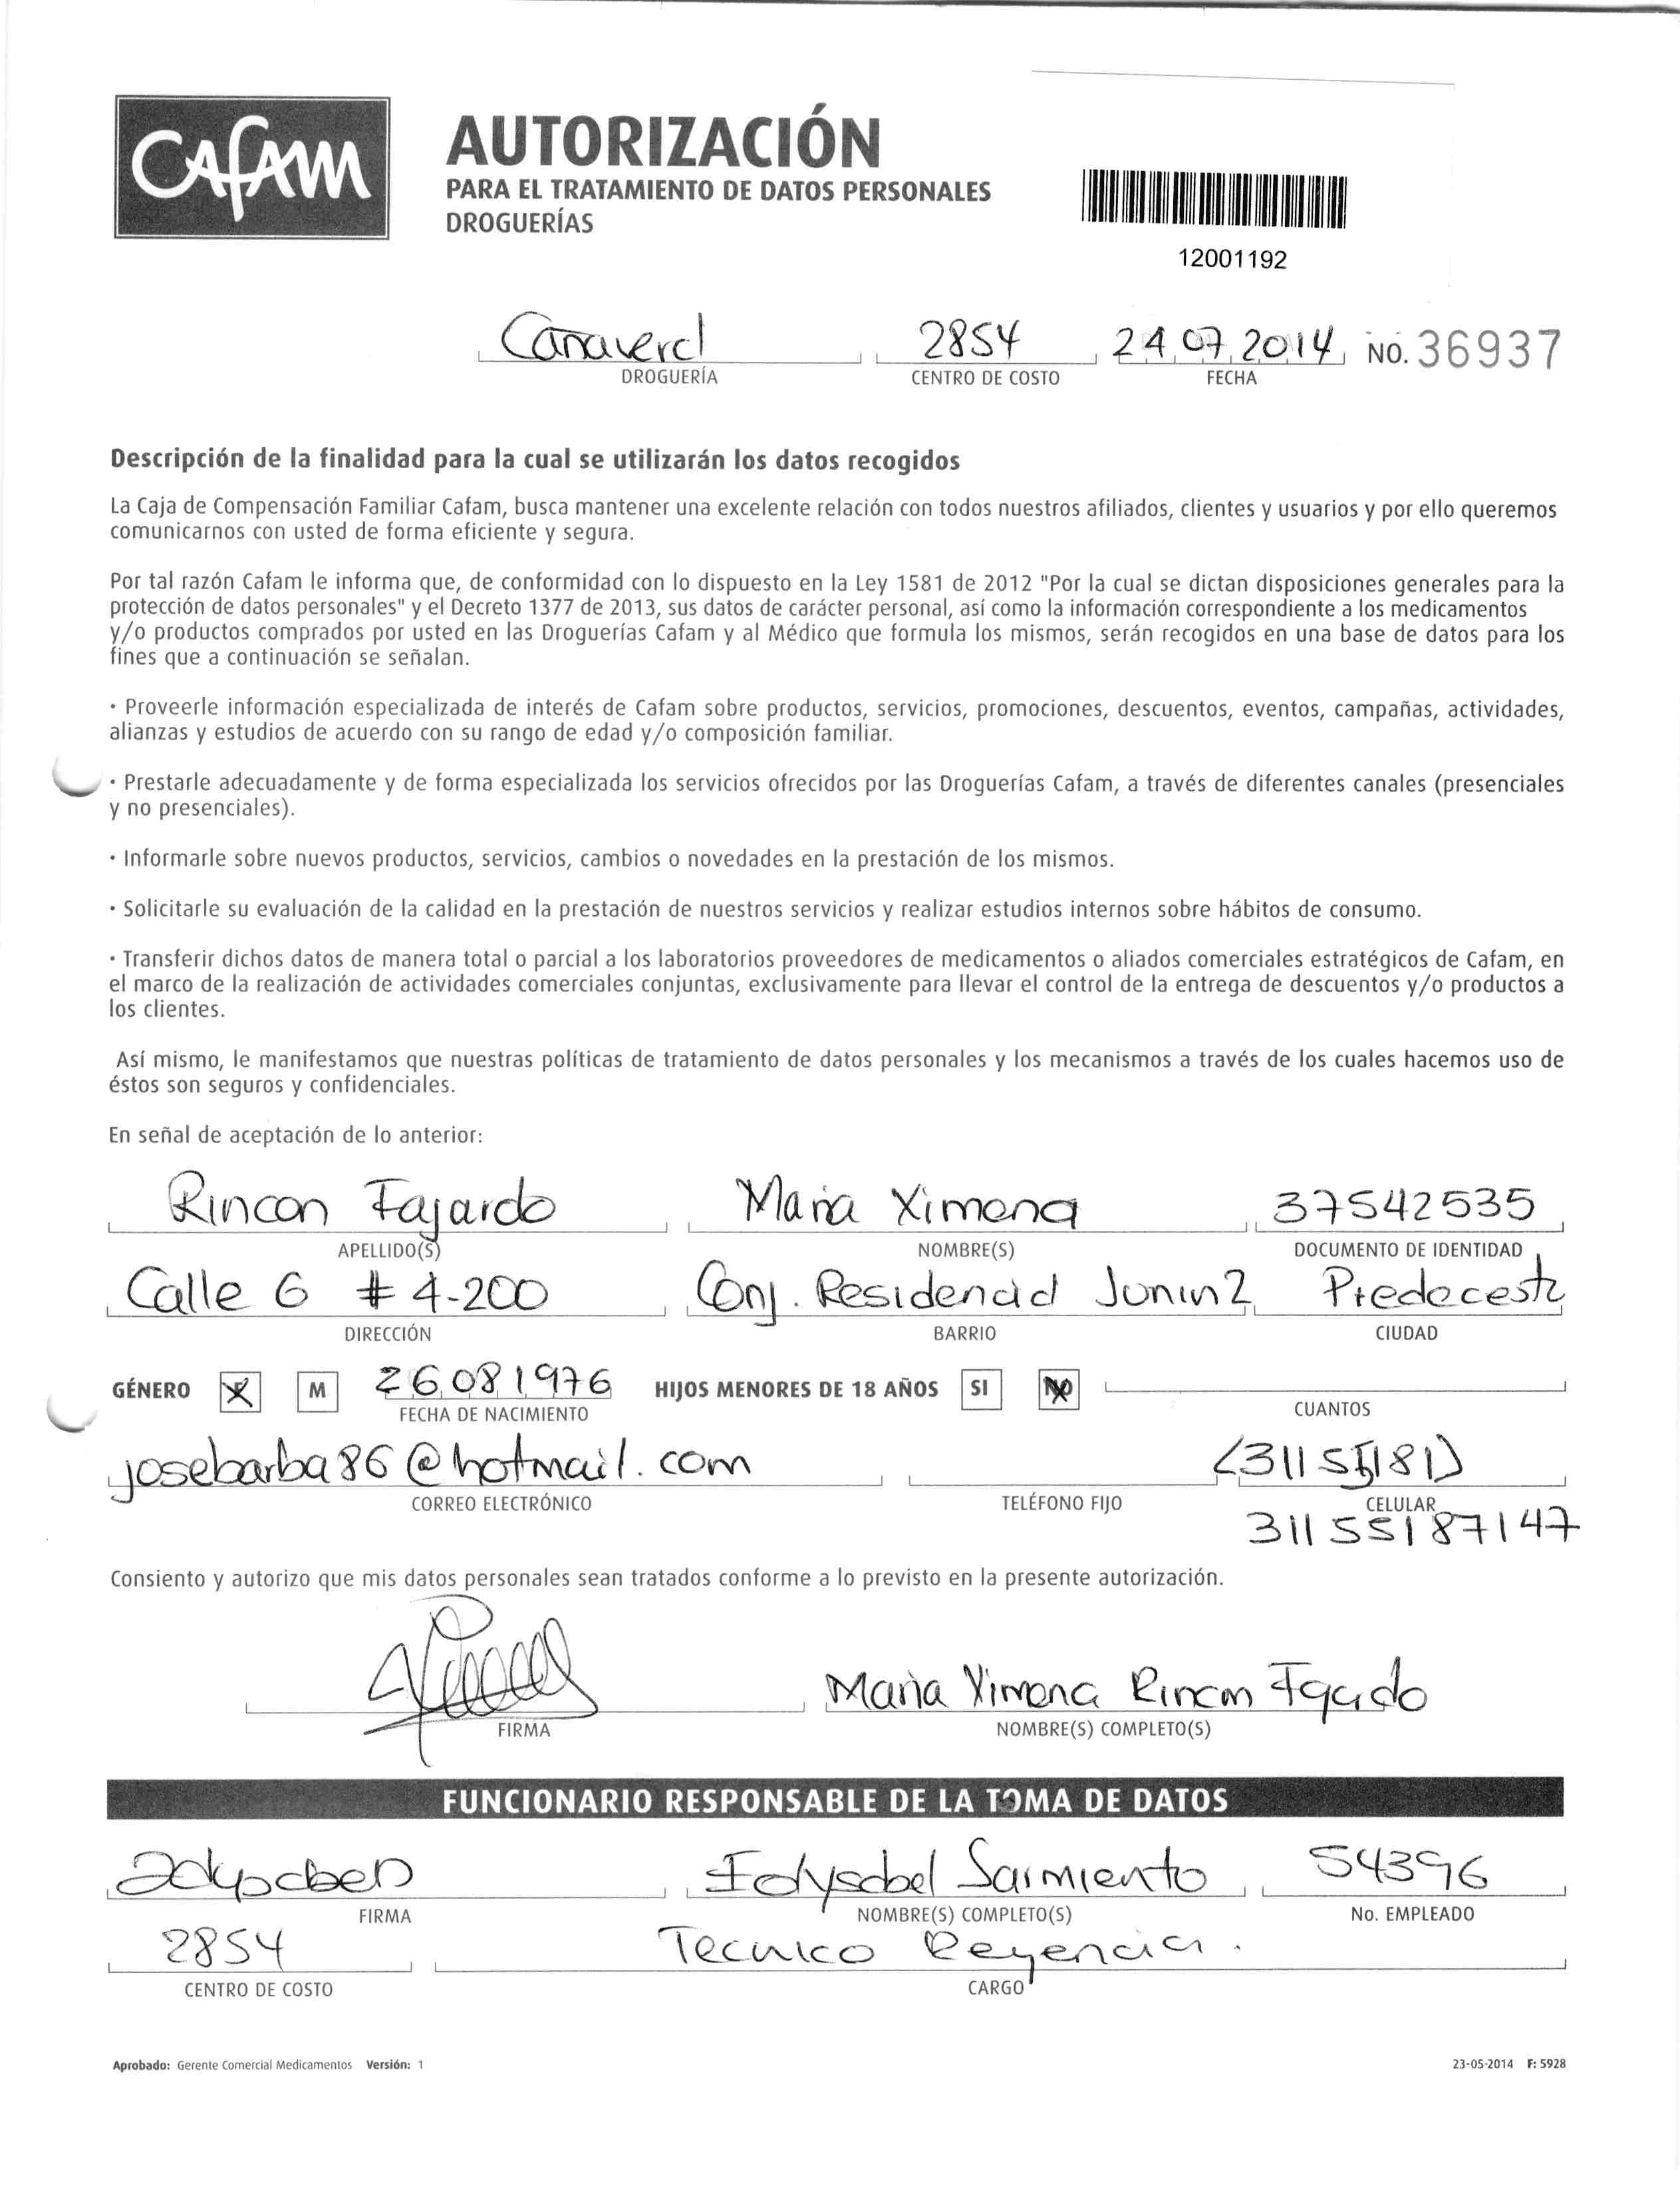 CAFAM
AUTORIZACIÓN
PARA EL TRATAMIENTO DE DATOS PERSONALES
DROGUERÍAS
12001192
Canaveral 2854 24 07 2014 NO. 36937
DROGUERÍA CENTRO DE COSTO FECHA
Descripción de la finalidad para la cual se utilizarán los datos recogidos
La Caja de Compensación Familiar Cafam, busca mantener una excelente relación con todos nuestros afiliados, clientes y usuarios y por ello queremos
comunicarnos con usted de forma eficiente y segura.
Por tal razón Cafam le informa que, de conformidad con lo dispuesto en la Ley 1581 de 2012 "Por la cual se dictan disposiciones generales para la
protección de datos personales" y el Decreto 1377 de 2013, sus datos de carácter personal, así como la información correspondiente a los medicamentos
y/o productos comprados por usted en las Droguerías Cafam y al Médico que formula los mismos, serán recogidos en una base de datos para los
fines que a continuación se señalan.
· Proveerle información especializada de interés de Cafam sobre productos, servicios, promociones, descuentos, eventos, campañas, actividades,
alianzas y estudios de acuerdo con su rango de edad y/o composición familiar.
· Prestarle adecuadamente y de forma especializada los servicios ofrecidos por las Droguerías Cafam, a través de diferentes canales (presenciales
y no presenciales).
· Informarle sobre nuevos productos, servicios, cambios o novedades en la prestación de los mismos.
· Solicitarle su evaluación de la calidad en la prestación de nuestros servicios y realizar estudios internos sobre hábitos de consumo.
· Transferir dichos datos de manera total o parcial a los laboratorios proveedores de medicamentos o aliados comerciales estratégicos de Cafam, en
el marco de la realización de actividades comerciales conjuntas, exclusivamente para llevar el control de la entrega de descuentos y/o productos a
los clientes.
Así mismo, le manifestamos que nuestras políticas de tratamiento de datos personales y los mecanismos a través de los cuales hacemos uso de
éstos son seguros y confidenciales.
En señal de aceptación de lo anterior:
Rincon Fajardo Maria Ximena 37542535
APELLIDO(S) NOMBRE(S) DOCUMENTO DE IDENTIDAD
Calle 6 # 4-200 Conj. Residencial Junin 2 Piedecesta
DIRECCIÓN BARRIO CIUDAD
GÉNERO F M 26 08 1976 HIJOS MENORES DE 18 AÑOS SI NO
FECHA DE NACIMIENTO CUANTOS
josebarba86@hotmail.com
CORREO ELECTRÓNICO TELÉFONO FIJO CELULAR
31155187147
Consiento y autorizo que mis datos personales sean tratados conforme a lo previsto en la presente autorización.
Maria Ximena Rincon Fajardo
FIRMA NOMBRE(S) COMPLETO(S)
FUNCIONARIO RESPONSABLE DE LA TOMA DE DATOS
Idlysabel Sarmiento 54396
FIRMA NOMBRE(S) COMPLETO(S) No. EMPLEADO
2854 Tecnico Regencia.
CENTRO DE COSTO CARGO
Aprobado: Gerente Comercial Medicamentos Versión: 1 23-05-2014 F: 5928